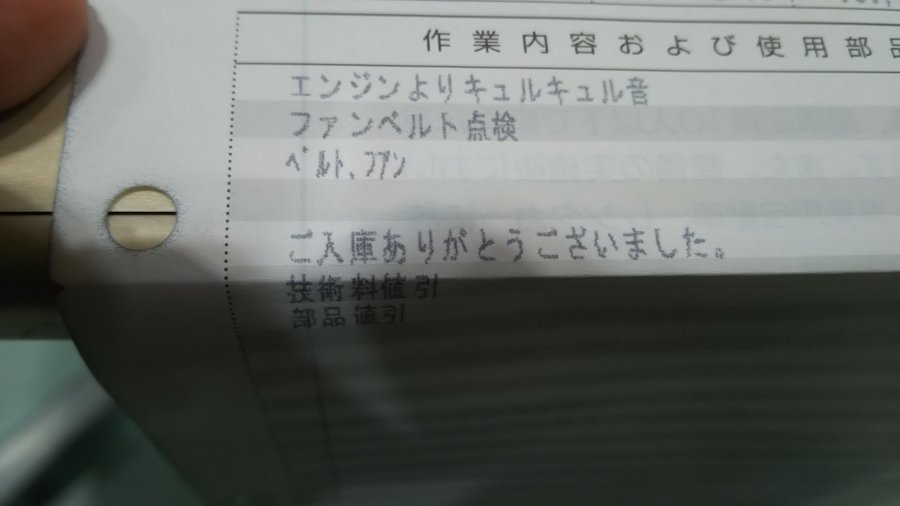 作業内容および使用部品
エンジンよりキュルキュル音
ファンベルト点検
ﾍﾞﾙﾄ、ﾌｱﾝ
ご入庫ありがとうございました。
技術料値引
部品値引